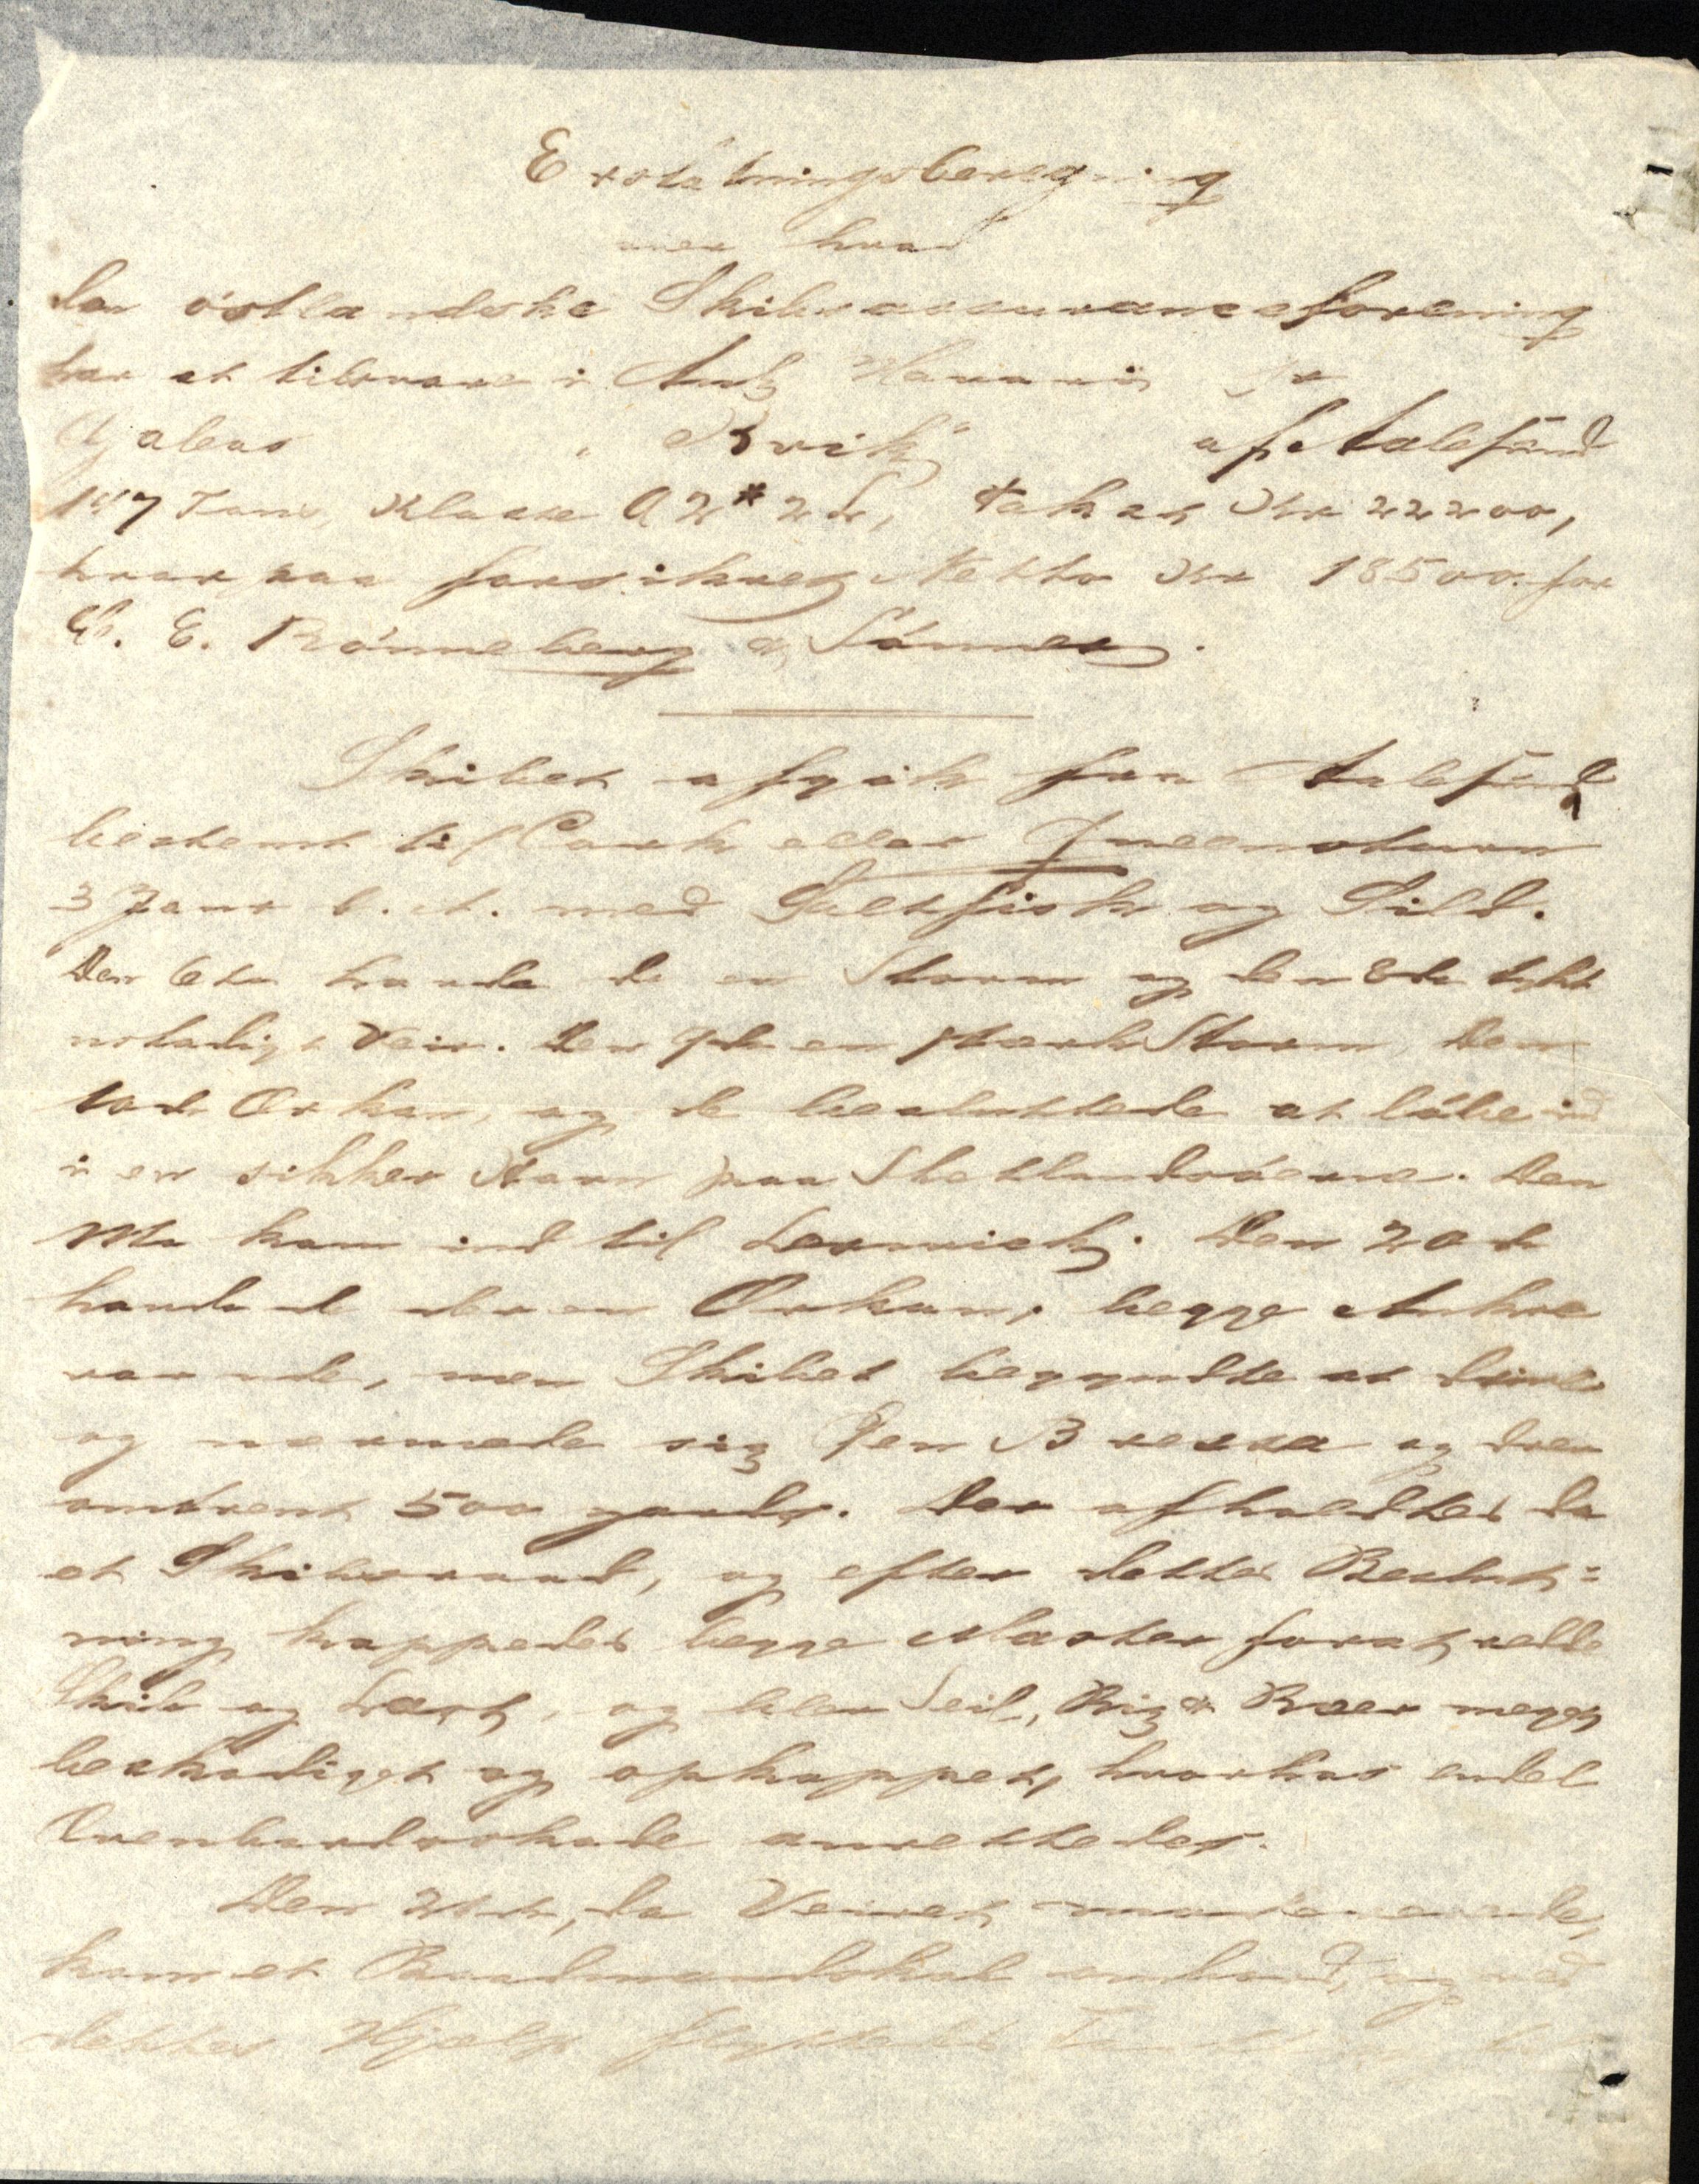 Erstatningsberegning
over hvad
den östlandske Skibsassuranceforening
har at tilsvare i Anl Havari pr
Galeas "Brik" af Aalesund
147 Tons, Klasse A 2* 2 L, Takst Kr 22200,
hvorpaa forsikret Netto Kr 18500 for
C. E. Rönneberg & Sönner.
Skibet afgik fra Aalesund
bestemt til Cork eller Queenstown
3 Janr d. A. med Saltfisk og Sild.
Den 6te havde de en Storm og den 8de tykt
ustadigt Veir. Den 9de en stærk Storm, den
10de Orkan, og de besluttede at löbe ind
i en sikker Havn paa Shetlandsöerne. Den
11te kom ind til Lerwick. Den 20de
havde de en Orkan, begge Ankre
var ude, men Skibet begyndte at drive
og nærmede sig Öen Bressa og drev
omtrent 500 yards. Der afholdtes da
et Skibsraad, og efter dettes Beslut=
ning kappedes begge Master forat redde
Skib og Last, og blev Seil, Rig & Ræer meget
beskadiget og opkappet, hvorhos endel
Ovenbordsskade anrettedes.
Den 21de, da Veiret
kom et Baadmandskab ombord, og ved
dettes Hjælp